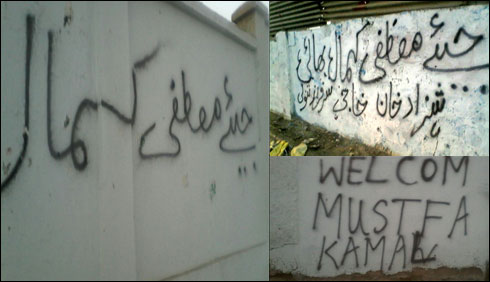 جیئے مصطفی کمال
جیئے مصطفی کمال بھائی
شہزاد خان حاجی
WELCOM
MUSTFA
KAMAL